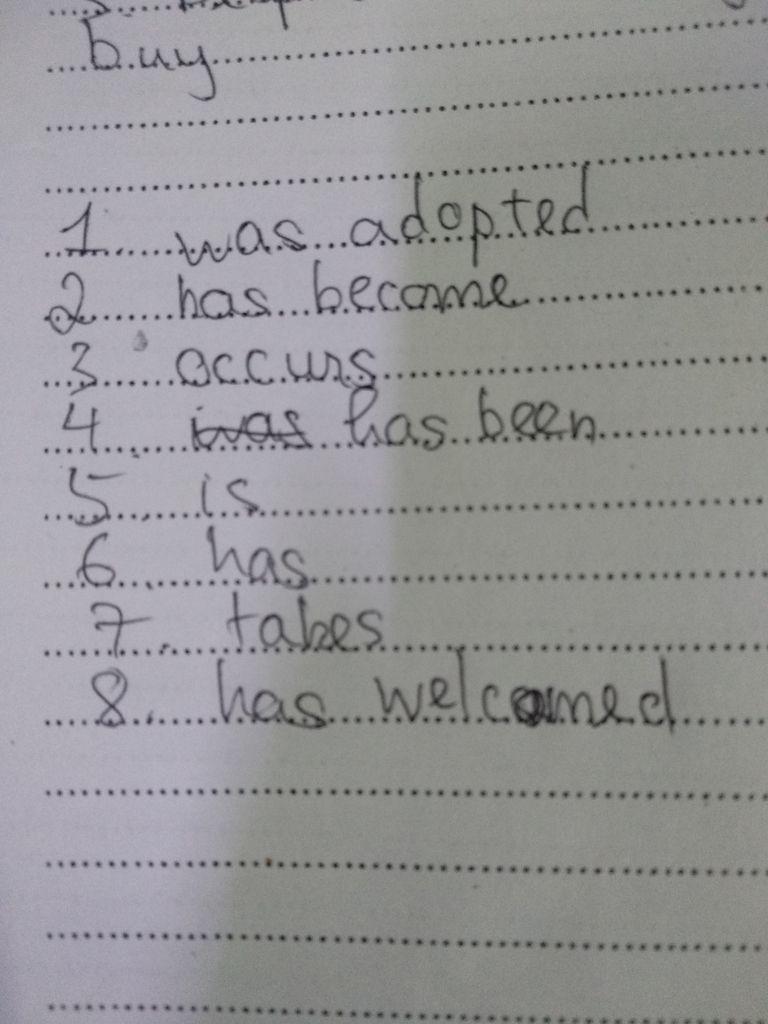 buy
1 was adopted
2 has become
3 occurs
4 was has been
5 is
6 has
7 takes
8 has welcomed